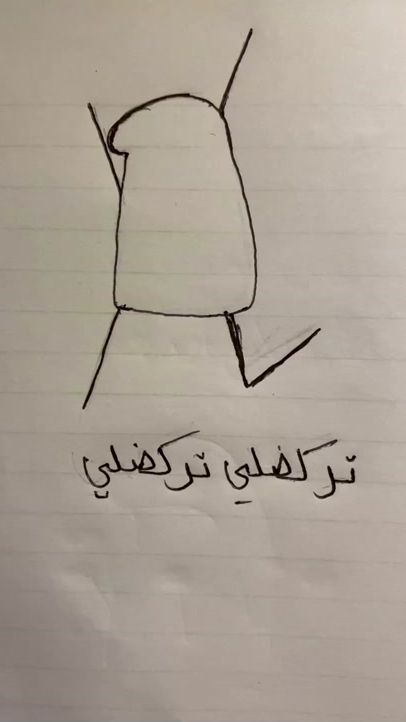 تركضلي تركضلي